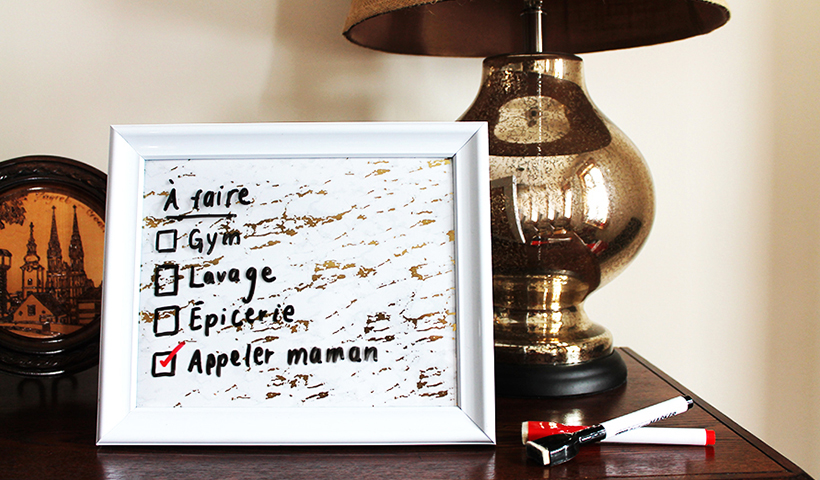 À faire
Gym
Lavage
Épicerie
Appeler maman